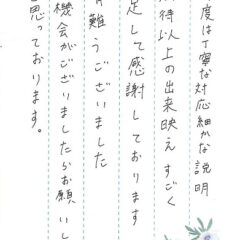 度は丁寧な対応細かな説明
待以上の出来映えすごく
足して感謝しております
難うございました
機会がございましたらお願いし
思っております。